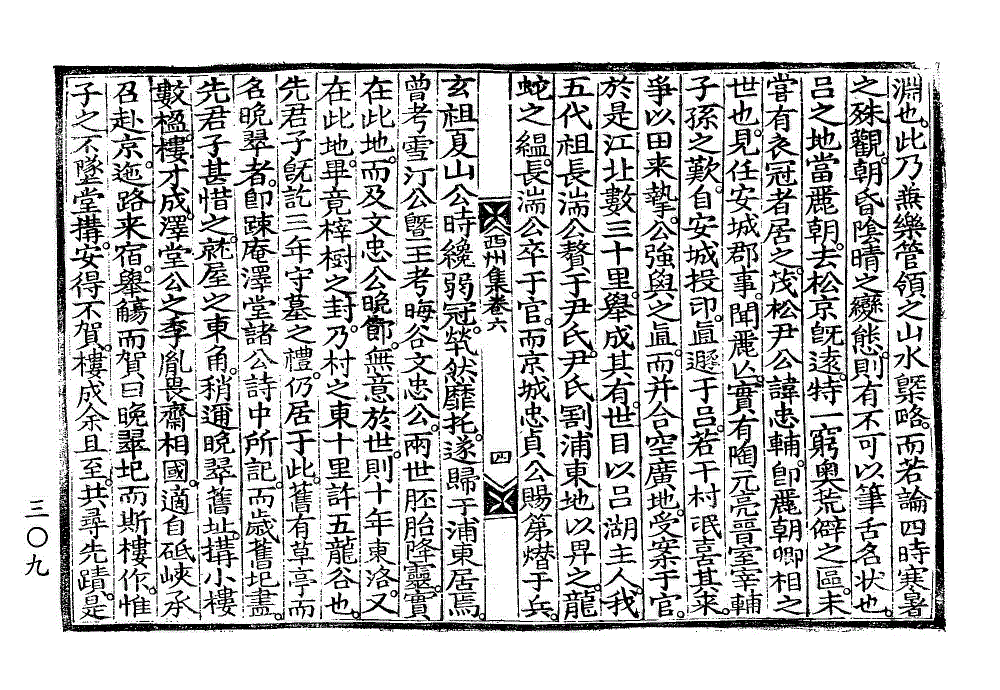 淵也。此乃兼樂管領之山水槩略。而若論四時寒暑
之殊觀。朝昏陰晴之變態。則有不可以筆舌名狀也。
呂之地當麗朝。去松京旣遠。特一窮奧荒僻之區。未
嘗有衣冠者居之。茂松尹公諱忠輔。卽麗朝卿相之
世也。見任安城郡事。聞麗亡。實有陶元亮晉室宰輔
子孫之歎。自安城投印。直遯于呂。若干村氓喜其來。
爭以田来贄。公強與之直。而幷合空廣地。受案于官。
於是江北數三十里。擧成其有。世目以呂湖主人。我
五代祖長湍公贅于尹氏。尹氏割浦東地以畀之。龍
蛇之縕。長湍公卒于官。而京城忠貞公賜第燬于兵。
西州集卷六
四
玄祖夏山公時纔弱冠。煢然靡托。遂歸于浦東居焉。
曾考雪汀公曁王考晦谷文忠公。兩世胚胎降靈。實
在此地。而及文忠公晩節。無意於世。則十年東洛。又
在此地。畢竟梓樹之封。乃村之東十里許五龍谷也。
先君子旣訖三年守墓之禮。仍居于此。舊有草亭而
名晩翠者。卽踈庵澤堂諸公詩中所記。而歲舊圮盡。
先君子甚惜之。就屋之東角。稍邇晩翠舊址。搆小樓
數楹。樓才成。澤堂公之季胤畏齋相國。適自砥峽承
召赴京。迤路来宿。擧觴而賀曰晩翠圮而斯樓作。惟
子之不墜堂搆。安得不賀。樓成余且至。共尋先蹟。是
三〇九